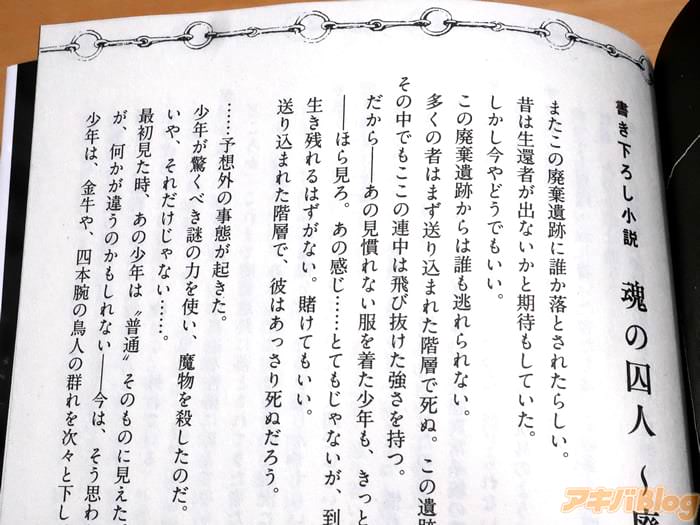 書き下ろし小説 魂の囚人 ～
またこの廃棄遺跡に誰か落とされたらしい。
昔は生還者が出ないかと期待もしていた。
しかし今やどうでもいい。
この廃棄遺跡からは誰も逃れられない。
多くの者はまず送り込まれた階層で死ぬ。この遺跡
その中でもここの連中は飛び抜けた強さを持つ。
だから――あの見慣れない服を着た少年も、きっと
――ほら見ろ。あの感じ……とてもじゃないが、到
生き残れるはずがない。賭けてもいい。
送り込まれた階層で、彼はあっさり死ぬだろう。
……予想外の事態が起きた。
少年が驚くべき謎の力を使い、魔物を殺したのだ。
いや、それだけじゃない……。
最初見た時、あの少年は〝普通〟そのものに見えた。
が、何かが違うのかもしれない――今は、そう思わ
少年は、金牛や、四本腕の鳥人の群れを次々と下し
アキバBlog